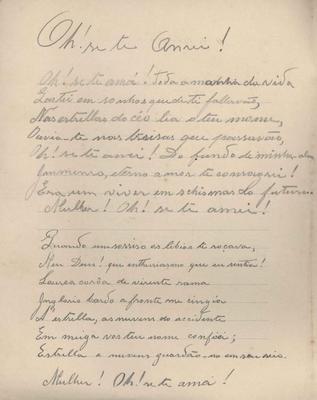 Oh! se te Amei!
Oh! se te amá! Toda a manhã da vida
Gastei em sonhos que de ti fallavão,
Nas estrellas do céo lia o teu nome,
Ouvia-te nas brisas que passavão,
Oh! se te amei! Do fundo de minha alma
Immenso, eterno amor te consagrei!
Era um viver em schismas do futuro
Mulher! Oh! se te amei!
Quando um sorriso os labios te roçava,
Meu Deus! que enthusiasmo que eu sentia!
Laurea corôa de virente rama
Inglorio bardo a fronte me cingia
A estrella, ás nuvens do occidente
Em meiga voz teu nome confiei;
Estrella e nuvens guardão-no em seu seio.
Mulher! Oh! se te amá!